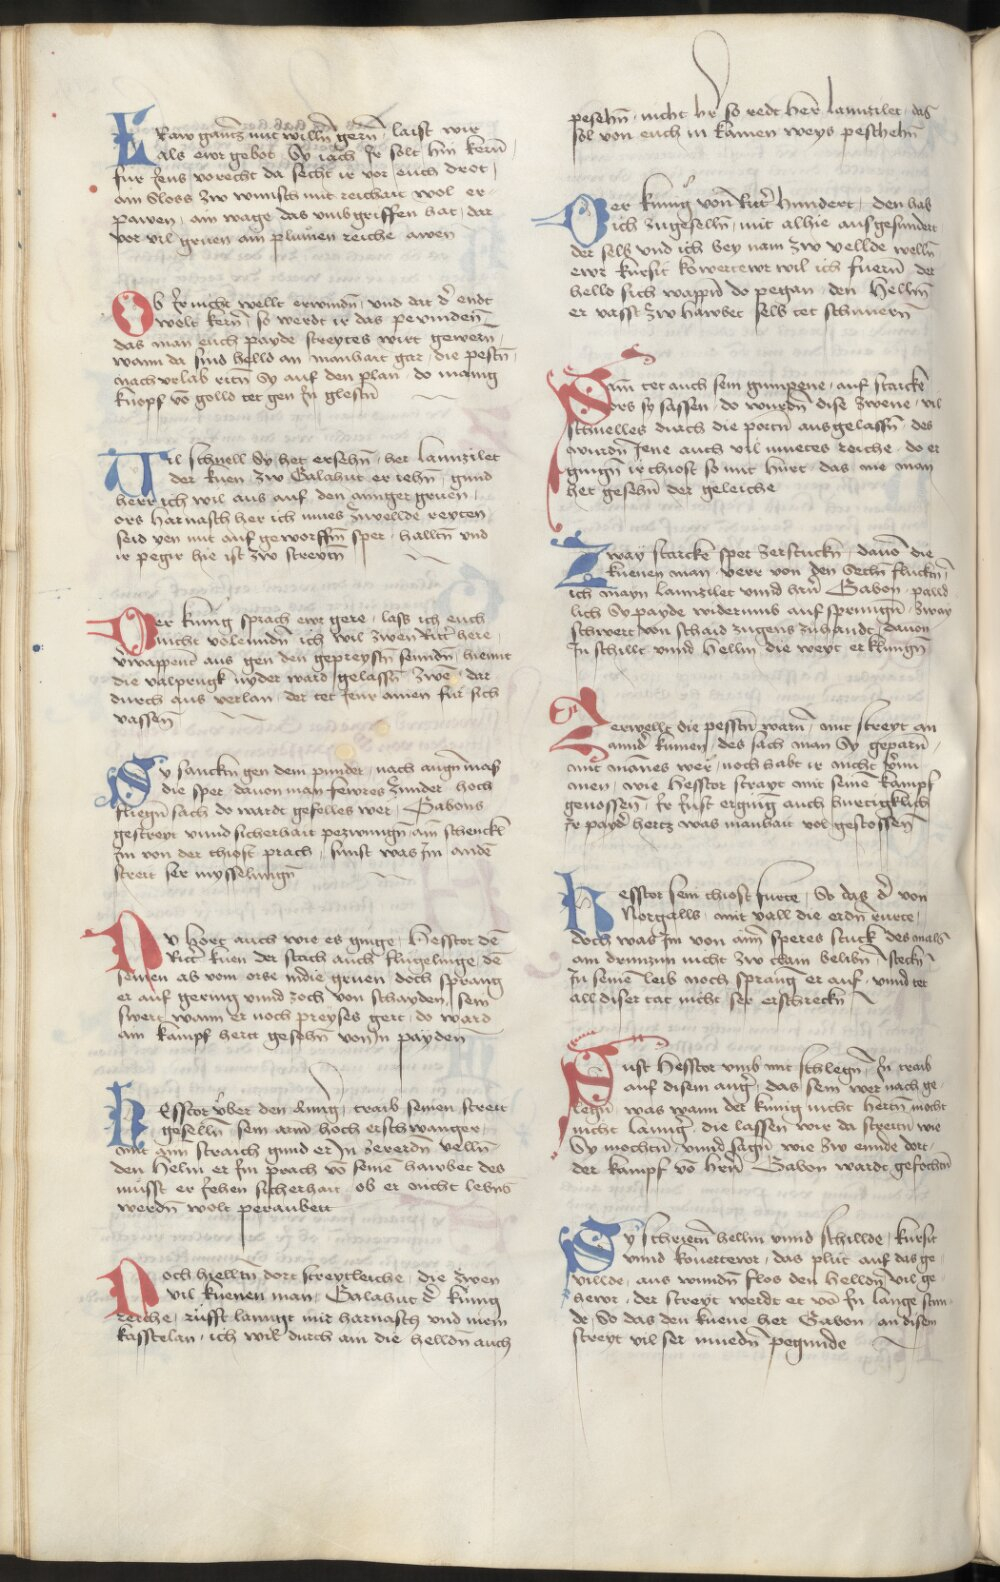 Fraw gantz mit willn̄ gern̄ / laist wir
als ewr gebot / Sy iach Ir solt hin kern̄
fur Jens vorecht da secht ir vor euch drot /
ain Sloss zw wunsch mit reichait wol er
pawen / ain wage das vmbgriffen hat / dar
vor vil gruen ain pluemen reiche awen
Ob Ir nicht wellt erwindn̄ / vnd dat d' endt
welt kern̄ / so werdt ir das pevinden
das man euch payde streytes wirt gewern̄
wann da sind helld an manhait gar / die pestn̄
nach vrlab ritn̄ Sy auf den plan / do manig
knopf vō golld tet gen In glestn̄
Vil schnell Sy het ersehn̄ / her lanntzilet
der kuen zw Galahut er iehn̄ / gund
herr ich wil aus auf den annger gruen /
ors harnasch her ich mues zwvellde reyten
seid yen mit auf geworffn̄ sper / halltn̄ vnd
ir peger hie ist zw streytn̄
Der kunig sprach ewr gere / lass ich euch
nicht volenndn̄ ich wil zwen Ritt' here /
vwappent aus gen den gepreystn̄ senndn̄ / hiemit
die valprugk nyder ward / gelassn̄ zwe / dar
durch aus verlan / der tet Jenr ainen fur sich
vassen
Sy sanckn̄ gen dem puneder / nach augn̄ mass
die sper / davon man fewres zunnder / hoch
fliegn̄ sach do wardt gefelles wer / Gabons
gestreyt vnnd sicherhait pezwungn̄ ain schenckl
Im von der thiost prach / sunst was Im an dē
streit ser mysselungn̄
Nv hort auch wie es ginge / Hesstor dē
Ritt' kuen der stach auch flugelinge dē
seinen ab vom orse in die gruen / doch sprang
er auf gering vnnd zoch von schayden / sein
swert wann er noch preyses gert / do ward
ain kampf hertt gesehn̄ von In payden
Hesstor vber den kunig / traib seinen streit
geselln̄ / sein arm hoch erschwanger
mit aim straich gund er In z' erdn̄ velln̄
den helm er Im prach vō seinē hawbet des
muesst er Iehen sicherhait / ob er nicht lebns
werdn̄ wolt peraubett
Noch hielltn̄ dort streytleiche / die zwen
vil kuenen man / Galahut d' kunig
reiche / ruefft lanngt mir harnasch vnd mein
kasstelan / ich wil durch ain die helldn̄ auch
pesehn̄ / nicht h'r so redt her lanntzilet / das
sol von euch in kainen weys peschehn̄
Der kunig von Ritt' hundert / den hab
ich zugeselln̄ / mit alhie ausgesundert
der selb vnd ich bey nam zw vellde welln̄
ewr kursit kowertewr wil ich fuern̄ der
helld sich wappn̄ do pegan / den hellm
er vasst zw hawbet selb tet schnuern̄
Sam tet auch sein gumpene / auf starckē
ors sy sassen / do wurdn̄ dise zwene / vil
schnelles durch die portn̄ ausgelassn̄ / des
wurdn̄ Jene auch vil muetes reiche / do er
giengn̄ ir thiost so mit hurt / das nie man
het gesehn̄ der geleiche
Zway starcke sper zerstuckn̄ / davō die
kuenen man / verr von den Settln̄ fluckn̄ /
ich mayn lanntzilet vnnd hrn̄ Gabon / palld
lich Sy payde widerumb auf sprungn̄ / zway
schwert von schaid zugens zuhandt / davon
In schillt vnnd hellm / die weyt erklungn̄
Derwellt die pesstn̄ warn̄ / mit streyt an
annd' kumen / des sach man Sy geparn̄ /
mit mānes wer / noch habt ir nicht v'nu
men / wie Hesstor strayt mit seinē kampf
genossen / Ir Just erging auch huertigklich
Ir payd' hertz was manhait vol gestossen
Hesstor sein thiost furte / So das d' von
Norgalls / mit vall die erdn̄ rurte /
doch was Im von aim speres stuck desmals
ain drunzun nicht zw tham belibn̄ steckn̄
In seinem leib noch sprang er auf / vnnd tet
all diser tat nicht ser erschreckn̄
Sust Hesstor vmb mit schlegn̄ / In traib
auf disem ang' / das sein wer nach ge
legn̄ / was wann der kunig nicht hertn̄ mocht
nicht lanng' / die lassen wir da streitn̄ / wie
Sy mochtn̄ / vnnd sagn̄ wie zw ennde dort /
der kampf vō hrn̄ Gabon wardt gefochtn̄
Sy schrietn̄ hellm vnnd schillde / kursit
vnnd kouertewr / das pluet auf das ge
villde / aus wundn̄ flos den helldn̄ vil ge
hewr / der streyt werdt et vō In lange stun
de / So das den kuene her Gabon / an disem
streyt vil ser muedn̄ pegunde